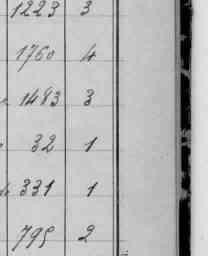 1223 3
1760 4
1483 3
32 1
331 1
795 2